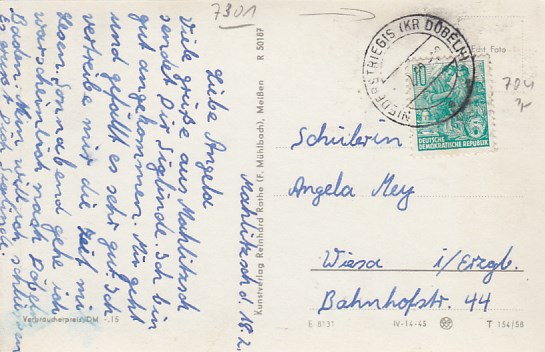 7301
Mahlitzsch d. 18.2.
Liebe Angela
Viele grüße aus Mahlitzsch
sendet Dir Sieglinde. Ich bin
gut angekommen. Mir geht
und gefällt es sehr gut. Ich
vertreibe mir die Zeit mit
lesen. Sonnabend gehe ich
warscheinlich nach
Baden. Nun will ich schliessen
Es grüsst Dich Sieglinde.
Verbraucherpreis DM -.15
Kunstverlag Reinhard Rothe (F. Mühlbach), Meißen R 50187
NIEDERSTRIEGIS (KR DÖBELN)
Echt Foto
704
10
DEUTSCHE
DEMOKRATISCHE REPUBLIK
Schülerin
Angela Mey
Wiesa i/Erzgb.
Bahnhofstr. 44
E 8131 IV-14-45 T 154/58